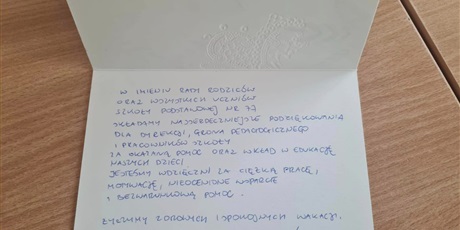 W IMIENIU RADY RODZICÓW
ORAZ WSZYSTKICH UCZNIÓW
SZKOŁY PODSTAWOWEJ NR 77
SKŁADAMY NAJSERDECZNIEJSZE PODZIĘKOWANIA
DLA DYREKCJI, GRONA PEDAGOGICZNEGO
I PRACOWNIKÓW SZKOŁY
ZA OKAZANĄ POMOC ORAZ WKŁAD W EDUKACJĘ
NASZYCH DZIECI.
JESTEŚMY WDZIĘCZNI ZA CIĘŻKĄ PRACĘ,
MOTYWACJĘ, NIEOCENIONE WSPARCIE
I BEZWARUNKOWĄ POMOC.
ŻYCZYMY ZDROWYCH I SPOKOJNYCH WAKACJI.